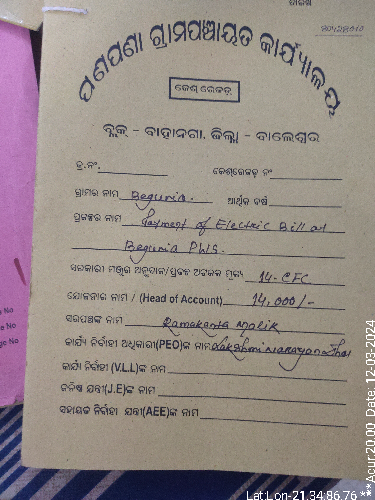 ପଣପଣା ଗ୍ରାମପଞ୍ଚାୟତ କାର୍ଯ୍ୟାଳୟ
କେଶ୍ ରେକର୍ଡ଼
ବ୍ଲକ୍ - ବାହାନଗା, ଜିଲ୍ଲା - ବାଲେଶ୍ୱର
କ୍ର.ନଂ. କେଶ୍‌ରେକର୍ଡ଼ ନଂ
ଗ୍ରାମର ନାମ Begunia. ଆର୍ଥିକ ବର୍ଷ
ପ୍ରକଳ୍ପର ନାମ Payment of Electric Bill at
Begunia PWS.
ସରକାରୀ ମଞ୍ଜୁର ଅନୁଦାନ/ପ୍ରକଳ୍ପ ଅଟକଳ ମୂଲ୍ୟ 14-CFC
ଯୋଜନାର ନାମ / (Head of Account) 14,000/-
ସରପଞ୍ଚଙ୍କ ନାମ Ramakanta Malik
କାର୍ଯ୍ୟ ନିର୍ବାହୀ ଅଧିକାରୀ(PEO)ଙ୍କ ନାମ Lakshmi Narayan
କାର୍ଯ୍ୟ ନିର୍ବାହୀ (V.L.L)ଙ୍କ ନାମ
କନିଷ୍ଠ ଯନ୍ତ୍ରୀ (J.E)ଙ୍କ ନାମ
ସହାୟକ ନିର୍ବାହୀ ଯନ୍ତ୍ରୀ (AEE)ଙ୍କ ନାମ
No
e No
ge No
Lat:Lon-21.34:86.76 ***Acur:20.00 Date:12-03-2024